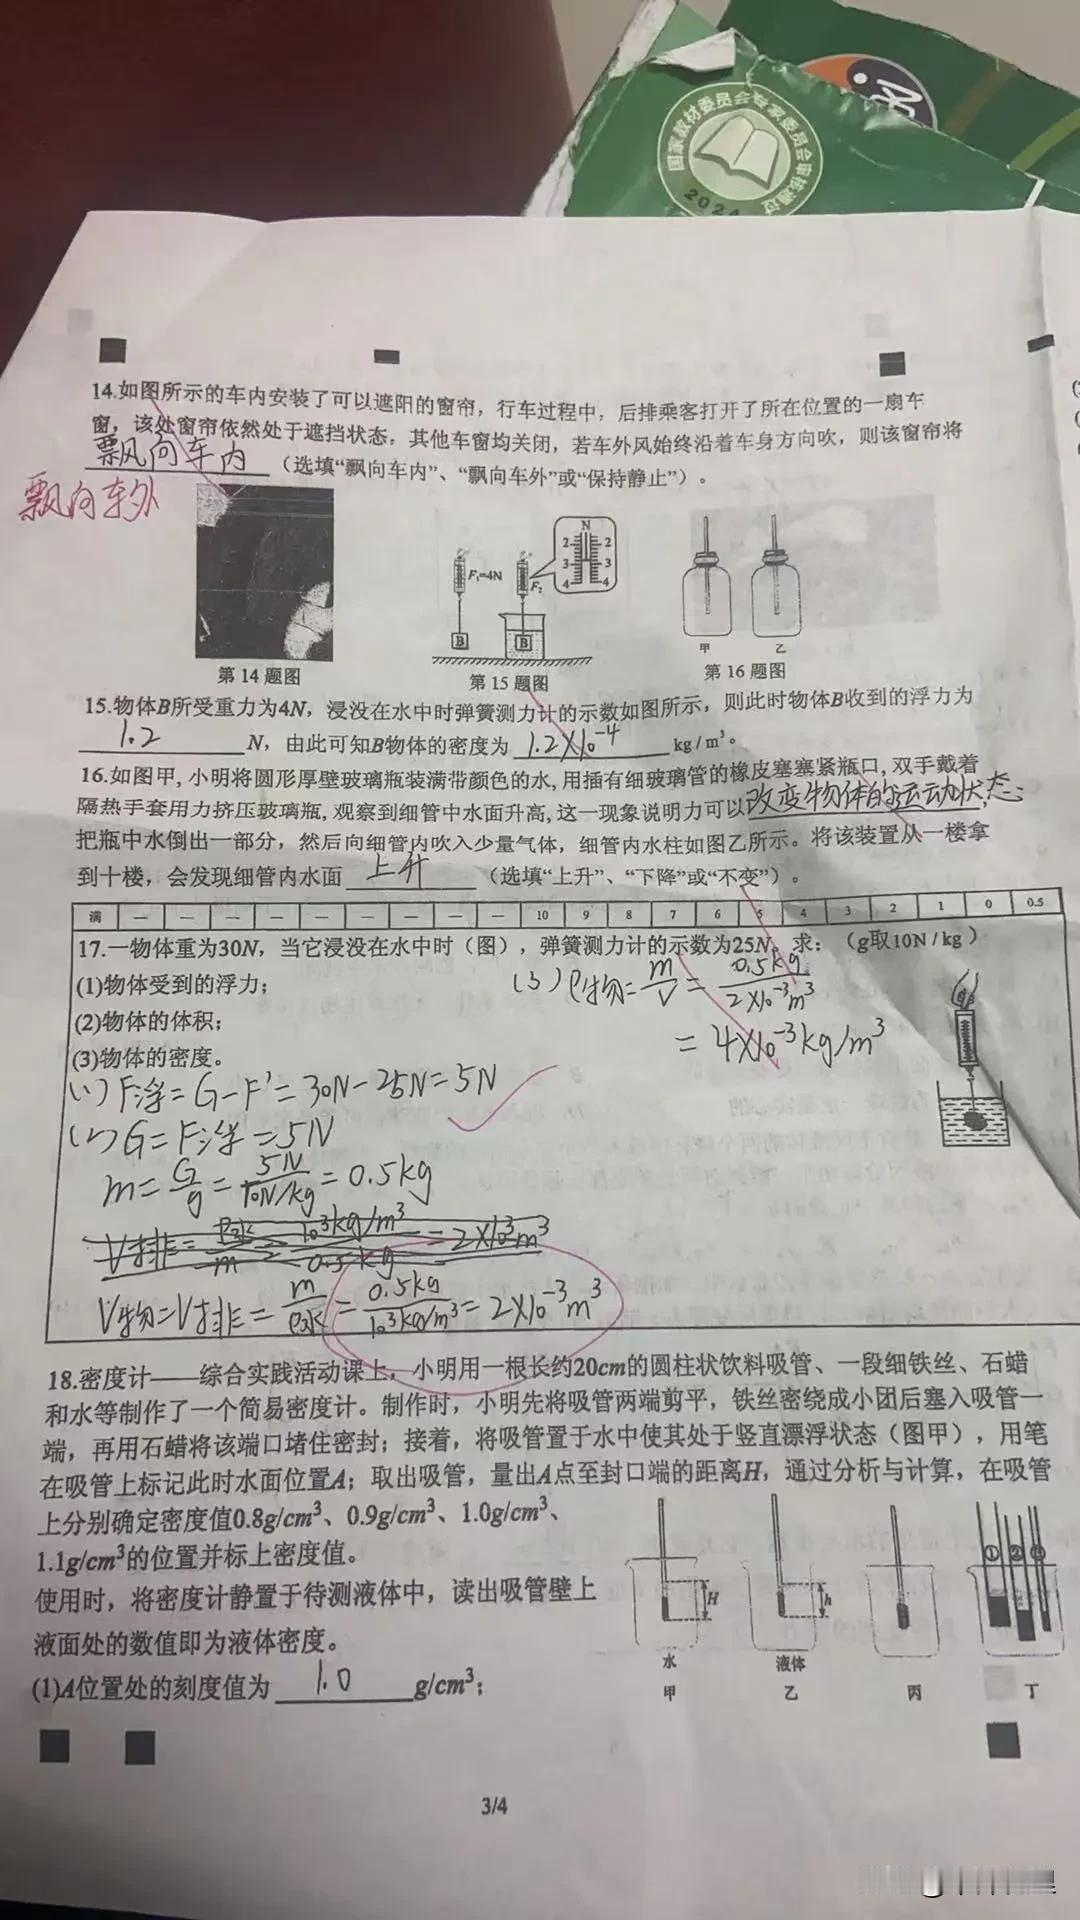 国家教材委员会专家委员会审核通过
2024
14.如图所示的车内安装了可以遮阳的窗帘，行车过程中，后排乘客打开了所在位置的一扇车
窗，该处窗帘依然处于遮挡状态，其他车窗均关闭，若车外风始终沿着车身方向吹，则该窗帘将
飘向车内（选填“飘向车内”、“飘向车外”或“保持静止”）。
飘向车外
N
2 2
3 3
4 4
F₁=4N F₂
B B
甲 乙
第14题图 第15题图 第16题图
15.物体B所受重力为4N，浸没在水中时弹簧测力计的示数如图所示，则此时物体B收到的浮力为
1.2 N，由此可知B物体的密度为 1.2×10⁻⁴ kg/m³。
16.如图甲,小明将圆形厚壁玻璃瓶装满带颜色的水,用插有细玻璃管的橡皮塞塞紧瓶口,双手戴着
隔热手套用力挤压玻璃瓶,观察到细管中水面升高,这一现象说明力可以改变物体的运动状态；
把瓶中水倒出一部分，然后向细管内吹入少量气体，细管内水柱如图乙所示。将该装置从一楼拿
到十楼，会发现细管内水面 上升 （选填“上升”、“下降”或“不变”）。
满 — — — — — — — — — 10 9 8 7 6 5 4 3 2 1 0 0.5
17.一物体重为30N，当它浸没在水中时（图），弹簧测力计的示数为25N。求：（g取10N/kg）
(1)物体受到的浮力；
(2)物体的体积；
(3)物体的密度。
(1) F浮=G-F'=30N-25N=5N
(2) G=F浮=5N
m=G/g=5N/10N/kg=0.5kg
V排=ρ水/m=10³kg/m³/0.5kg=2×10³m³
V物=V排=m/ρ水=0.5kg/10³kg/m³=2×10⁻³m³
(3) ρ物=m/V=0.5kg/2×10⁻³m³
=4×10⁻³kg/m³
18.密度计——综合实践活动课上，小明用一根长约20cm的圆柱状饮料吸管、一段细铁丝、石蜡
和水等制作了一个简易密度计。制作时，小明先将吸管两端剪平，铁丝密绕成小团后塞入吸管一
端，再用石蜡将该端口堵住密封；接着，将吸管置于水中使其处于竖直漂浮状态（图甲），用笔
在吸管上标记此时水面位置A；取出吸管，量出A点至封口端的距离H，通过分析与计算，在吸管
上分别确定密度值0.8g/cm³、0.9g/cm³、1.0g/cm³、
1.1g/cm³的位置并标上密度值。
使用时，将密度计静置于待测液体中，读出吸管壁上
液面处的数值即为液体密度。
(1)A位置处的刻度值为 1.0 g/cm³；
H h ① ② ③
水 液体
甲 乙 丙 丁
3/4